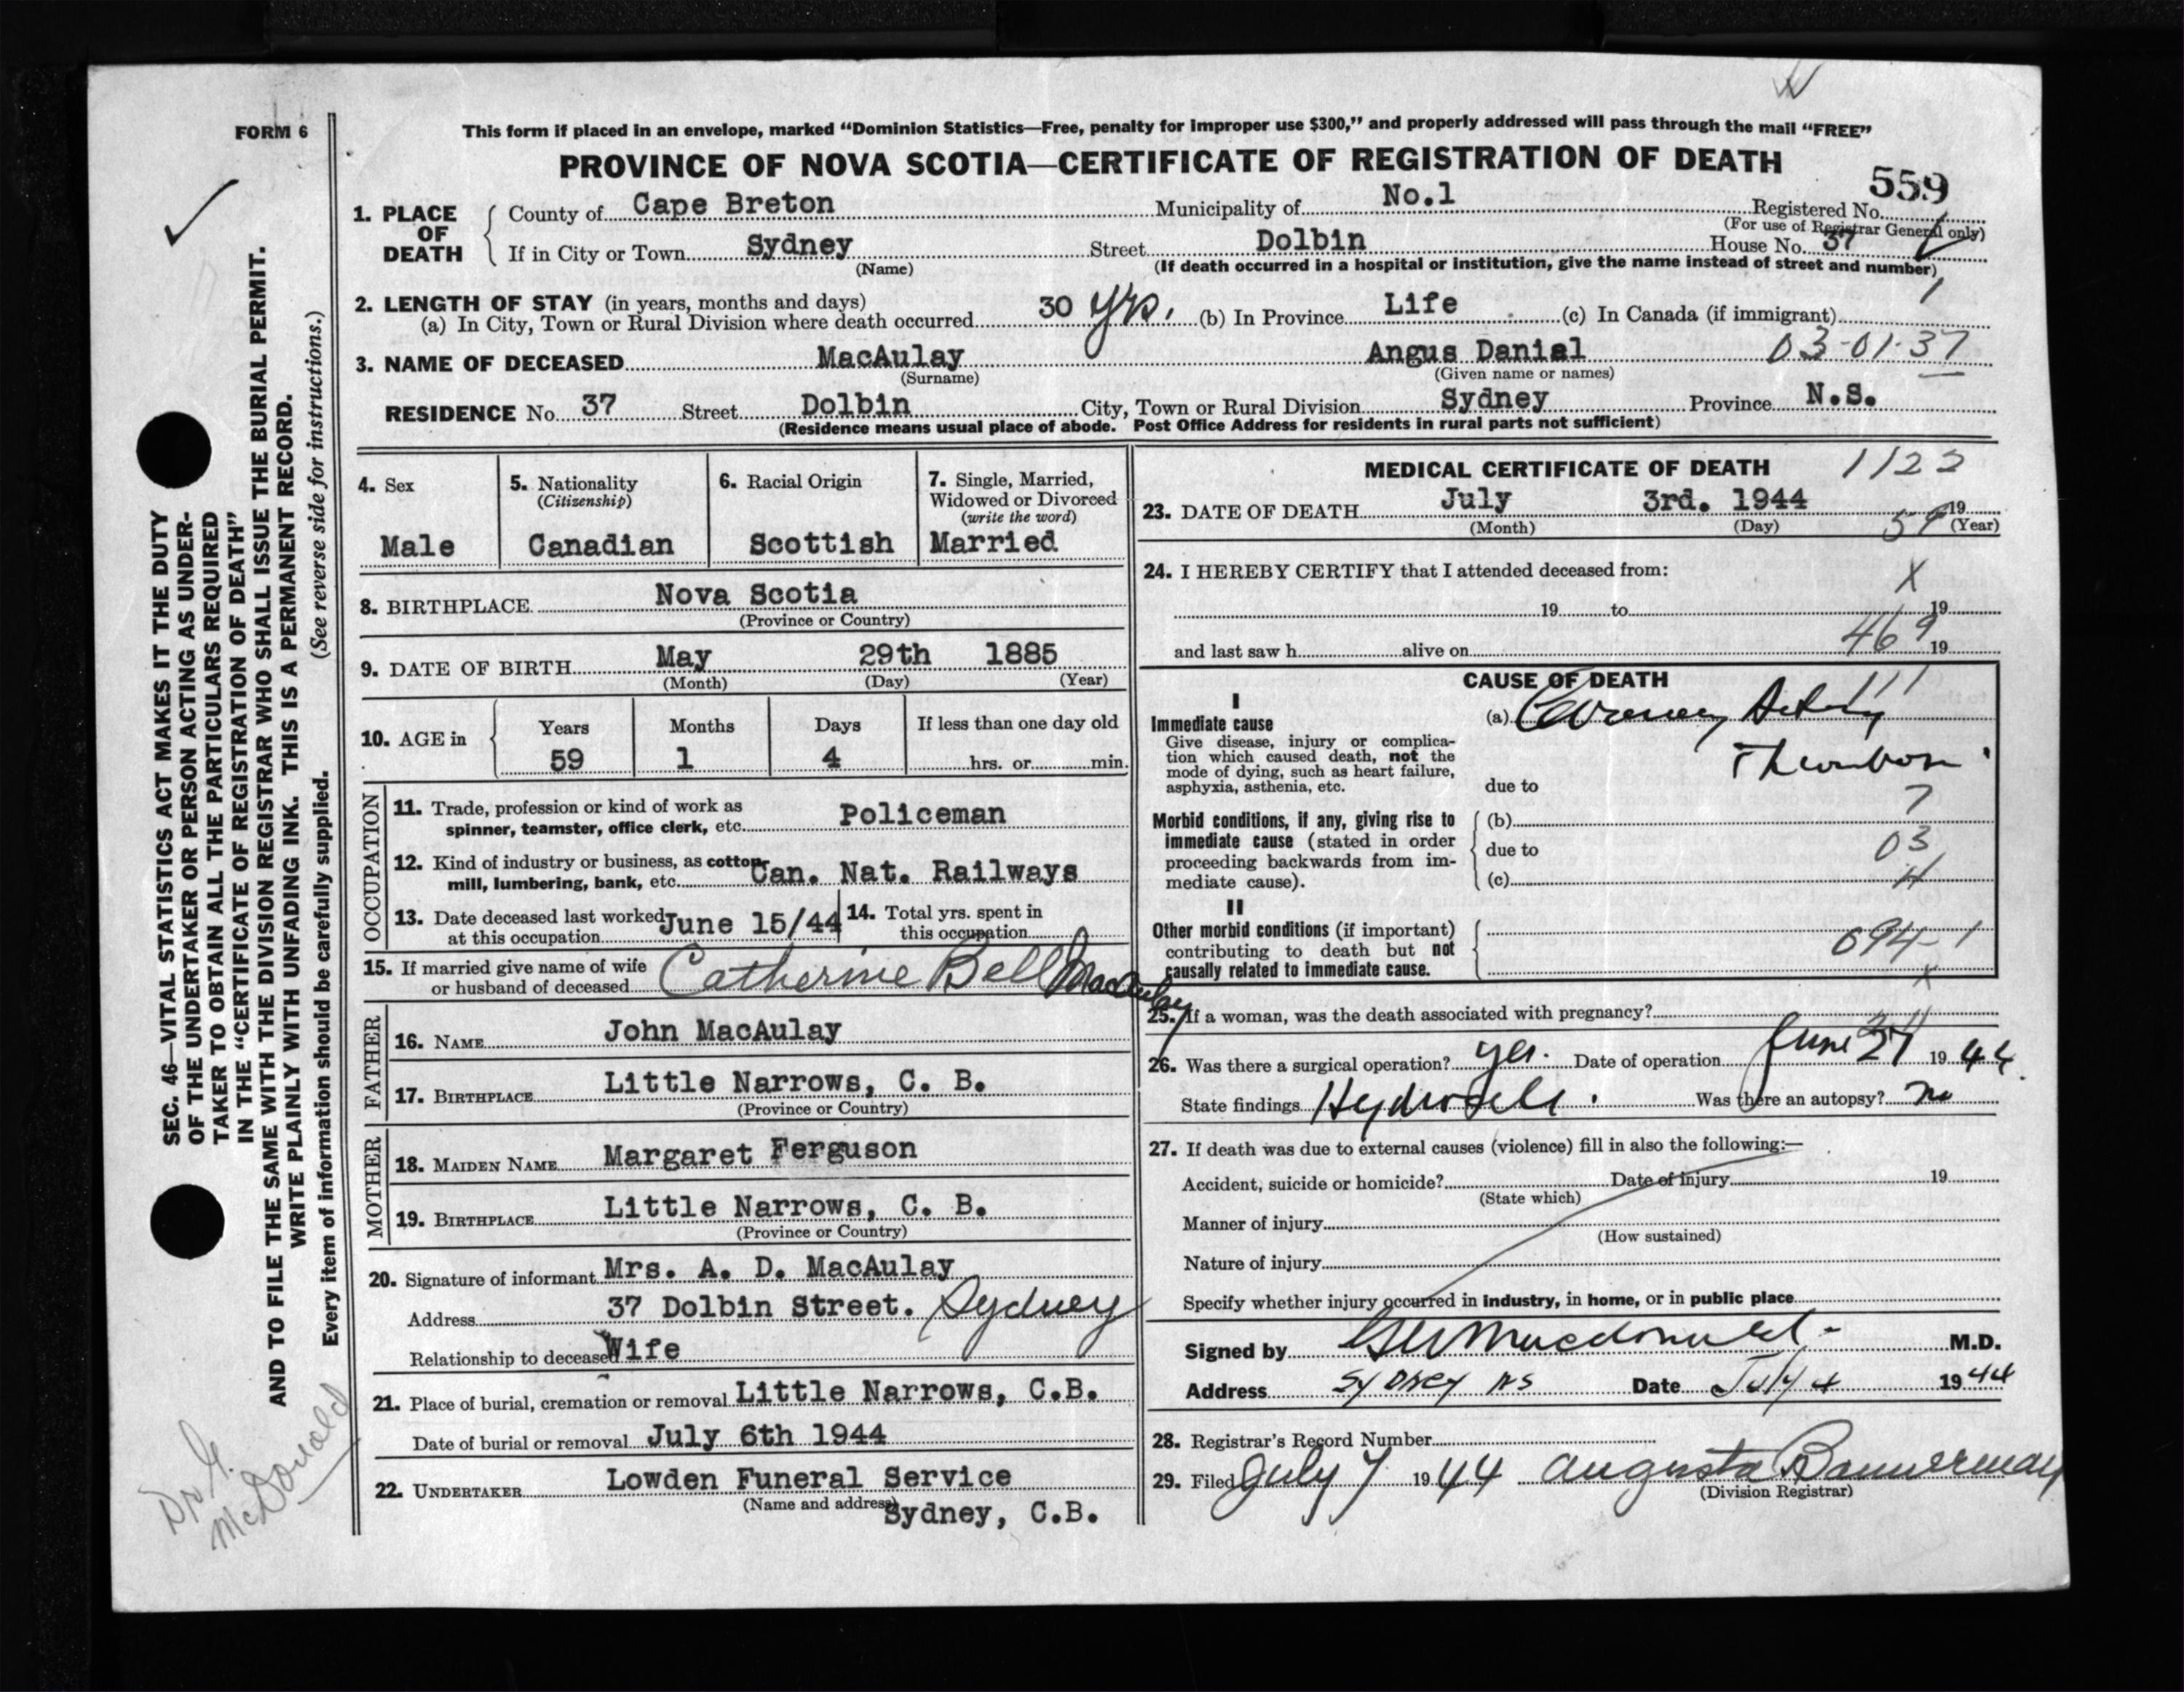 FORM 6
This form if placed in an envelope, marked “Dominion Statistics—Free, penalty for improper use $300,” and properly addressed will pass through the mail “FREE”
PROVINCE OF NOVA SCOTIA—CERTIFICATE OF REGISTRATION OF DEATH
559
1. PLACE OF DEATH County of Cape Breton Municipality of No.1 Registered No.
(For use of Registrar General only)
If in City or Town Sydney Street Dolbin House No. 37
(Name) (If death occurred in a hospital or institution, give the name instead of street and number)
2. LENGTH OF STAY (in years, months and days)
(a) In City, Town or Rural Division where death occurred 30 yrs. (b) In Province Life (c) In Canada (if immigrant)
3. NAME OF DECEASED MacAulay Angus Danial 03-01-37
(Surname) (Given name or names)
RESIDENCE No. 37 Street Dolbin City, Town or Rural Division Sydney Province N.S.
(Residence means usual place of abode. Post Office Address for residents in rural parts not sufficient)
4. Sex 5. Nationality (Citizenship) 6. Racial Origin 7. Single, Married, Widowed or Divorced (write the word)
Male Canadian Scottish Married
8. BIRTHPLACE Nova Scotia
(Province or Country)
9. DATE OF BIRTH May 29th 1885
(Month) (Day) (Year)
10. AGE in Years Months Days If less than one day old
59 1 4 hrs. or min.
OCCUPATION
11. Trade, profession or kind of work as
spinner, teamster, office clerk, etc. Policeman
12. Kind of industry or business, as cotton
mill, lumbering, bank, etc. Can. Nat. Railways
13. Date deceased last worked
at this occupation June 15/44
14. Total yrs. spent in
this occupation
15. If married give name of wife
or husband of deceased Catherine Bell MacAulay
FATHER
16. NAME John MacAulay
17. BIRTHPLACE Little Narrows, C. B.
(Province or Country)
MOTHER
18. MAIDEN NAME Margaret Ferguson
19. BIRTHPLACE Little Narrows, C. B.
(Province or Country)
20. Signature of informant Mrs. A. D. MacAulay
Address 37 Dolbin Street. Sydney
Relationship to deceased Wife
21. Place of burial, cremation or removal Little Narrows, C.B.
Date of burial or removal July 6th 1944
22. UNDERTAKER Lowden Funeral Service
(Name and address) Sydney, C.B.
MEDICAL CERTIFICATE OF DEATH 1122
23. DATE OF DEATH July 3rd. 1944 19
(Month) (Day) (Year)
59
24. I HEREBY CERTIFY that I attended deceased from:
X
19 to 19
and last saw h alive on 469 19
CAUSE OF DEATH
I
Immediate cause (a) Coronary Artery
Thrombosis
Give disease, injury or complica-
tion which caused death, not the
mode of dying, such as heart failure,
asphyxia, asthenia, etc. due to
7
Morbid conditions, if any, giving rise to (b)
immediate cause (stated in order due to 03
proceeding backwards from im-
mediate cause). (c)
II
Other morbid conditions (if important)
contributing to death but not 694-1
causally related to immediate cause.
X
25. If a woman, was the death associated with pregnancy?
26. Was there a surgical operation? yes. Date of operation June 27 1944
State findings Hydrocele. Was there an autopsy? no
27. If death was due to external causes (violence) fill in also the following:—
Accident, suicide or homicide? Date of injury 19
(State which)
Manner of injury
(How sustained)
Nature of injury
Specify whether injury occurred in industry, in home, or in public place
Signed by Macdonald M.D.
Address Sydney NS Date July 4 1944
28. Registrar's Record Number
29. Filed July 7 1944 Augusta Bannerman
(Division Registrar)
SEC. 46—VITAL STATISTICS ACT MAKES IT THE DUTY
OF THE UNDERTAKER OR PERSON ACTING AS UNDER-
TAKER TO OBTAIN ALL THE PARTICULARS REQUIRED
IN THE “CERTIFICATE OF REGISTRATION OF DEATH”
AND TO FILE THE SAME WITH THE DIVISION REGISTRAR WHO SHALL ISSUE THE BURIAL PERMIT.
WRITE PLAINLY WITH UNFADING INK. THIS IS A PERMANENT RECORD.
Every item of information should be carefully supplied. (See reverse side for instructions.)
Dr G.
McDonald